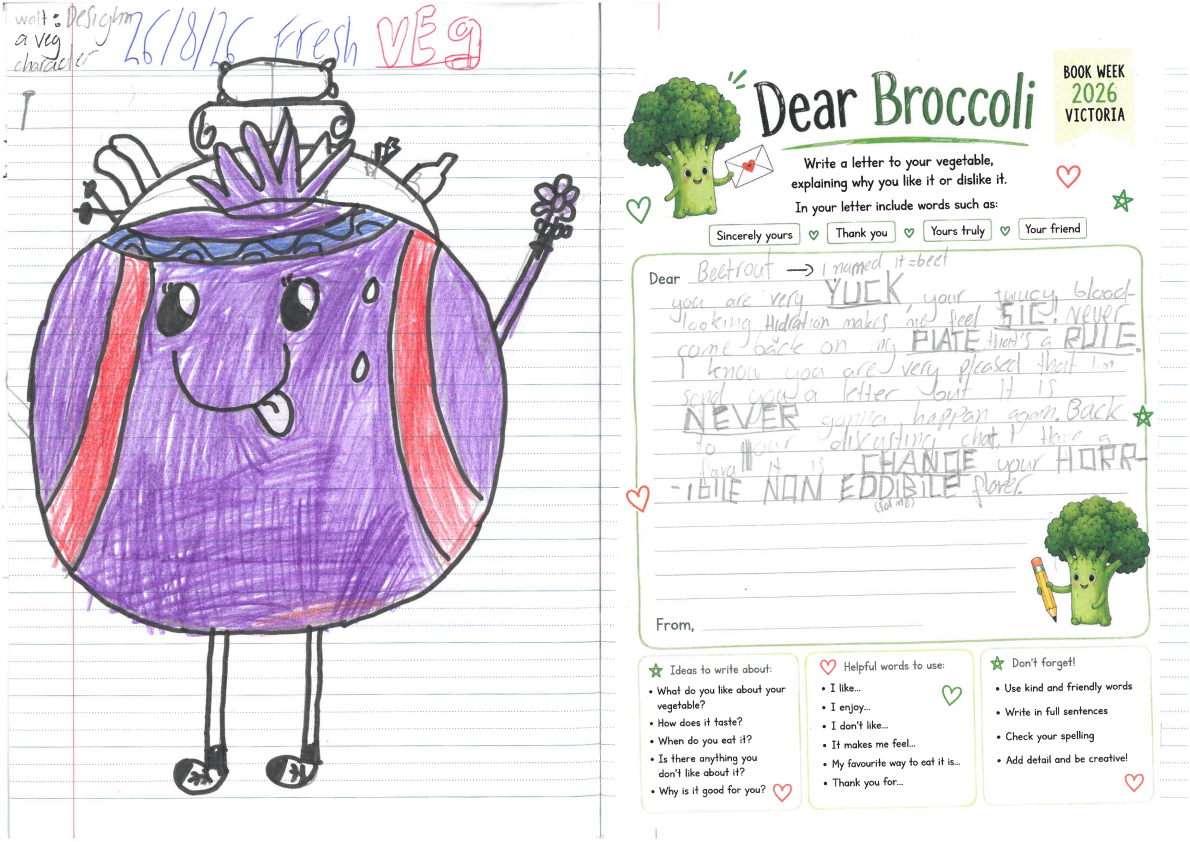 walt: Desighn
a veg
character
26/8/26 Fresh VEg
Dear Broccoli
BOOK WEEK
2026
VICTORIA
Write a letter to your vegetable,
explaining why you like it or dislike it.
In your letter include words such as:
Sincerely yours
Thank you
Yours truly
Your friend
Dear Beetrout → I named it=beet
you are very YUCK, your blood-
looking Hidration makes me feel SIC! Never
come back on my PlATE that's a RULE.
I know you are very pleased that Im
send you a letter but it is
NEVER gonna happan again. Back
to our discusting chat, I Have a
it is CHANGE your HORR-
-IBlE NON EDDIBlE flaver.
(for ME)
From,
Ideas to write about:
• What do you like about your
vegetable?
• How does it taste?
• When do you eat it?
• Is there anything you
don't like about it?
• Why is it good for you?
Helpful words to use:
• I like...
• I enjoy...
• I don't like...
• It makes me feel...
• My favourite way to eat it is...
• Thank you for...
Don't forget!
• Use kind and friendly words
• Write in full sentences
• Check your spelling
• Add detail and be creative!